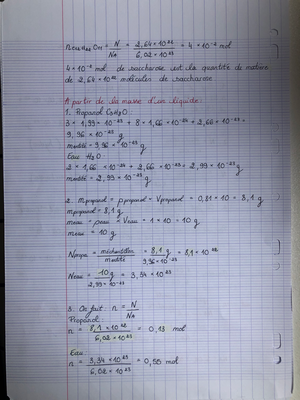 n C₁₂H₂₂O₁₁ = N / NA = 2,64 × 10²² / 6,02 × 10²³ = 4 × 10⁻² mol
4 × 10⁻² mol de saccharose est la quantité de matière
de 2,64 × 10²² molécules de saccharose
A partir de la masse d'un liquide :
1. Propanol C₃H₈O
3 × 1,99 × 10⁻²³ + 8 × 1,66 × 10⁻²⁴ + 2,66 × 10⁻²³ =
9,96 × 10⁻²³ g
m entité = 9,96 × 10⁻²³ g
Eau H₂O
2 × 1,66 × 10⁻²⁴ + 2,66 × 10⁻²³ = 2,99 × 10⁻²³ g
m entité = 2,99 × 10⁻²³ g
2. m propanol = ρ propanol × V propanol = 0,81 × 10 = 8,1 g
m propanol = 8,1 g
m eau = ρ eau × V eau = 1 × 10 = 10 g
m eau = 10 g
N propa = m échantillon / m entité = 8,1 g / 9,96 × 10⁻²³ = 8,1 × 10²²
N eau = 10 g / 2,99 × 10⁻²³ = 3,34 × 10²³
3. On fait n = N / NA
Propanol
n = 8,1 × 10²² / 6,02 × 10²³ = 0,13 mol
Eau
n = 3,34 × 10²³ / 6,02 × 10²³ = 0,55 mol